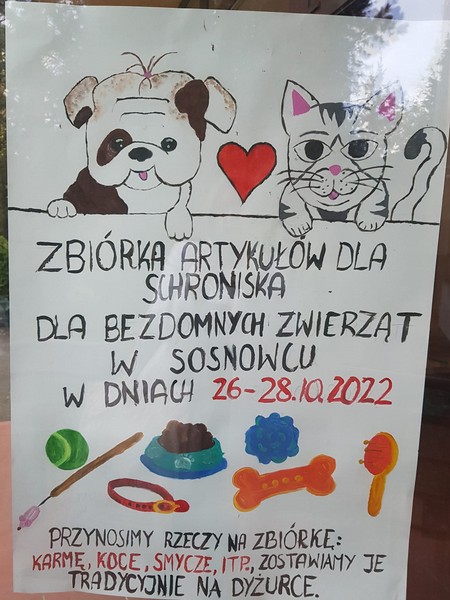 ZBIÓRKA ARTYKUŁÓW DLA
SCHRONISKA
DLA BEZDOMNYCH ZWIERZĄT
W SOSNOWCU
W DNIACH 26-28.10.2022
PRZYNOSIMY RZECZY NA ZBIÓRKĘ:
KARMĘ, KOCE, SMYCZE, ITP., ZOSTAWIAMY JE
TRADYCYJNIE NA DYŻURCE.